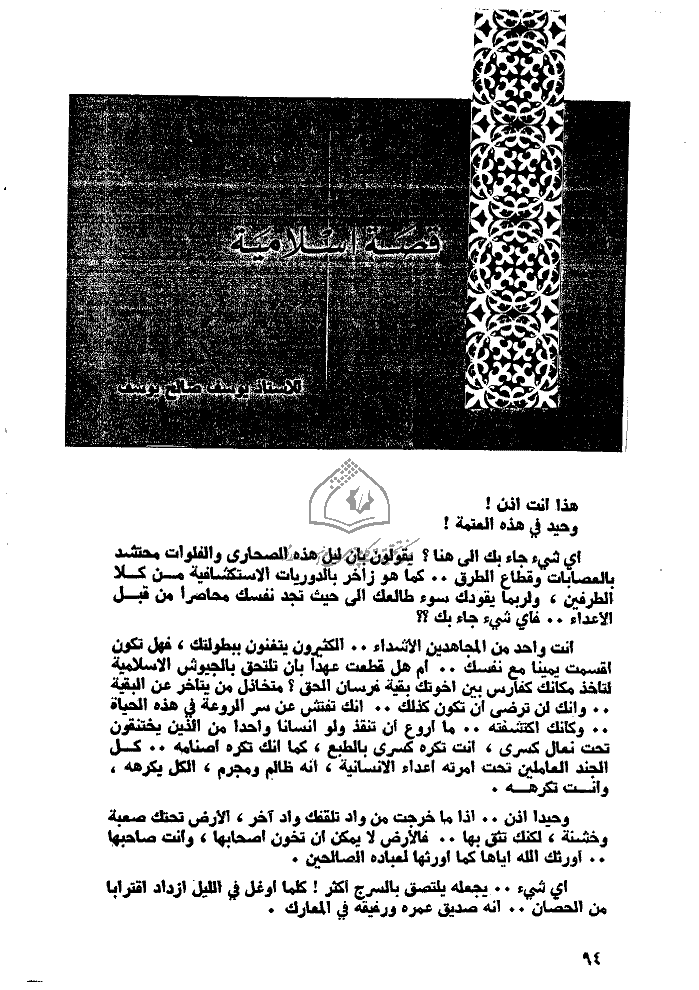 قصة إسلامية
للاستاذ يوسف صالح يوسف
هذا انت اذن !
وحيد في هذه العتمة !
اي شيء جاء بك الى هنا ؟ يقولون بان ليل هذه الصحارى والفلوات محتشد
بالعصابات وقطاع الطرق ٠٠ كما هو زاخر بالدوريات الاستكشافية مـن كـلا
الطرفين ، ولربما يقودك سوء طالعك الى حيث تجد نفسك محاصرا من قبـل
الأعداء ٠٠ فاي شيء جاء بك ؟؟
انت واحد من المجاهدين الأشداء ٠٠ الكثيرون يتغنون ببطولتك ، فهل تكون
اقسمت يمينا مع نفسك ٠٠ ام هل قطعت عهدا بان تلتحق بالجيوش الاسلامية
لتاخذ مكانك كفارس بين اخوتك بقية فرسان الحق ؟ متخاذل من يتاخر عن البقية
٠٠ وانك لن ترضى ان تكون كذلك ٠٠ انك تفتش عن سر الروعة في هذه الحياة
٠٠ وكانك اكتشفته ٠٠ ما اروع ان تنقذ ولو انسانا واحدا من الذين يختنقون
تحت نعال كسرى ، انت تكره كسرى بالطبع ، كما انك تكره اصنامه ٠٠ كـل
الجند العاملين تحت امرته اعداء الانسانية ، انه ظالم ومجرم ، الكل يكرهه ،
وانـت تكرهـه ٠
وحيدا اذن ٠٠ اذا ما خرجت من واد تلقفك واد آخر ، الأرض تحتك صعبة
وخشنة ، لكنك تثق بها ٠٠ فالأرض لا يمكن ان تخون اصحابها ، وانت صاحبها
٠٠ اورثك الله اياها كما اورثها لعباده الصالحين ٠
اي شيء ٠٠ يجعله يلتصق بالسرج أكثر ! كلما اوغل في الليل ازداد اقترابا
من الحصان ٠٠ انه صديق عمره ورفيقه في المعارك ٠
٩٤